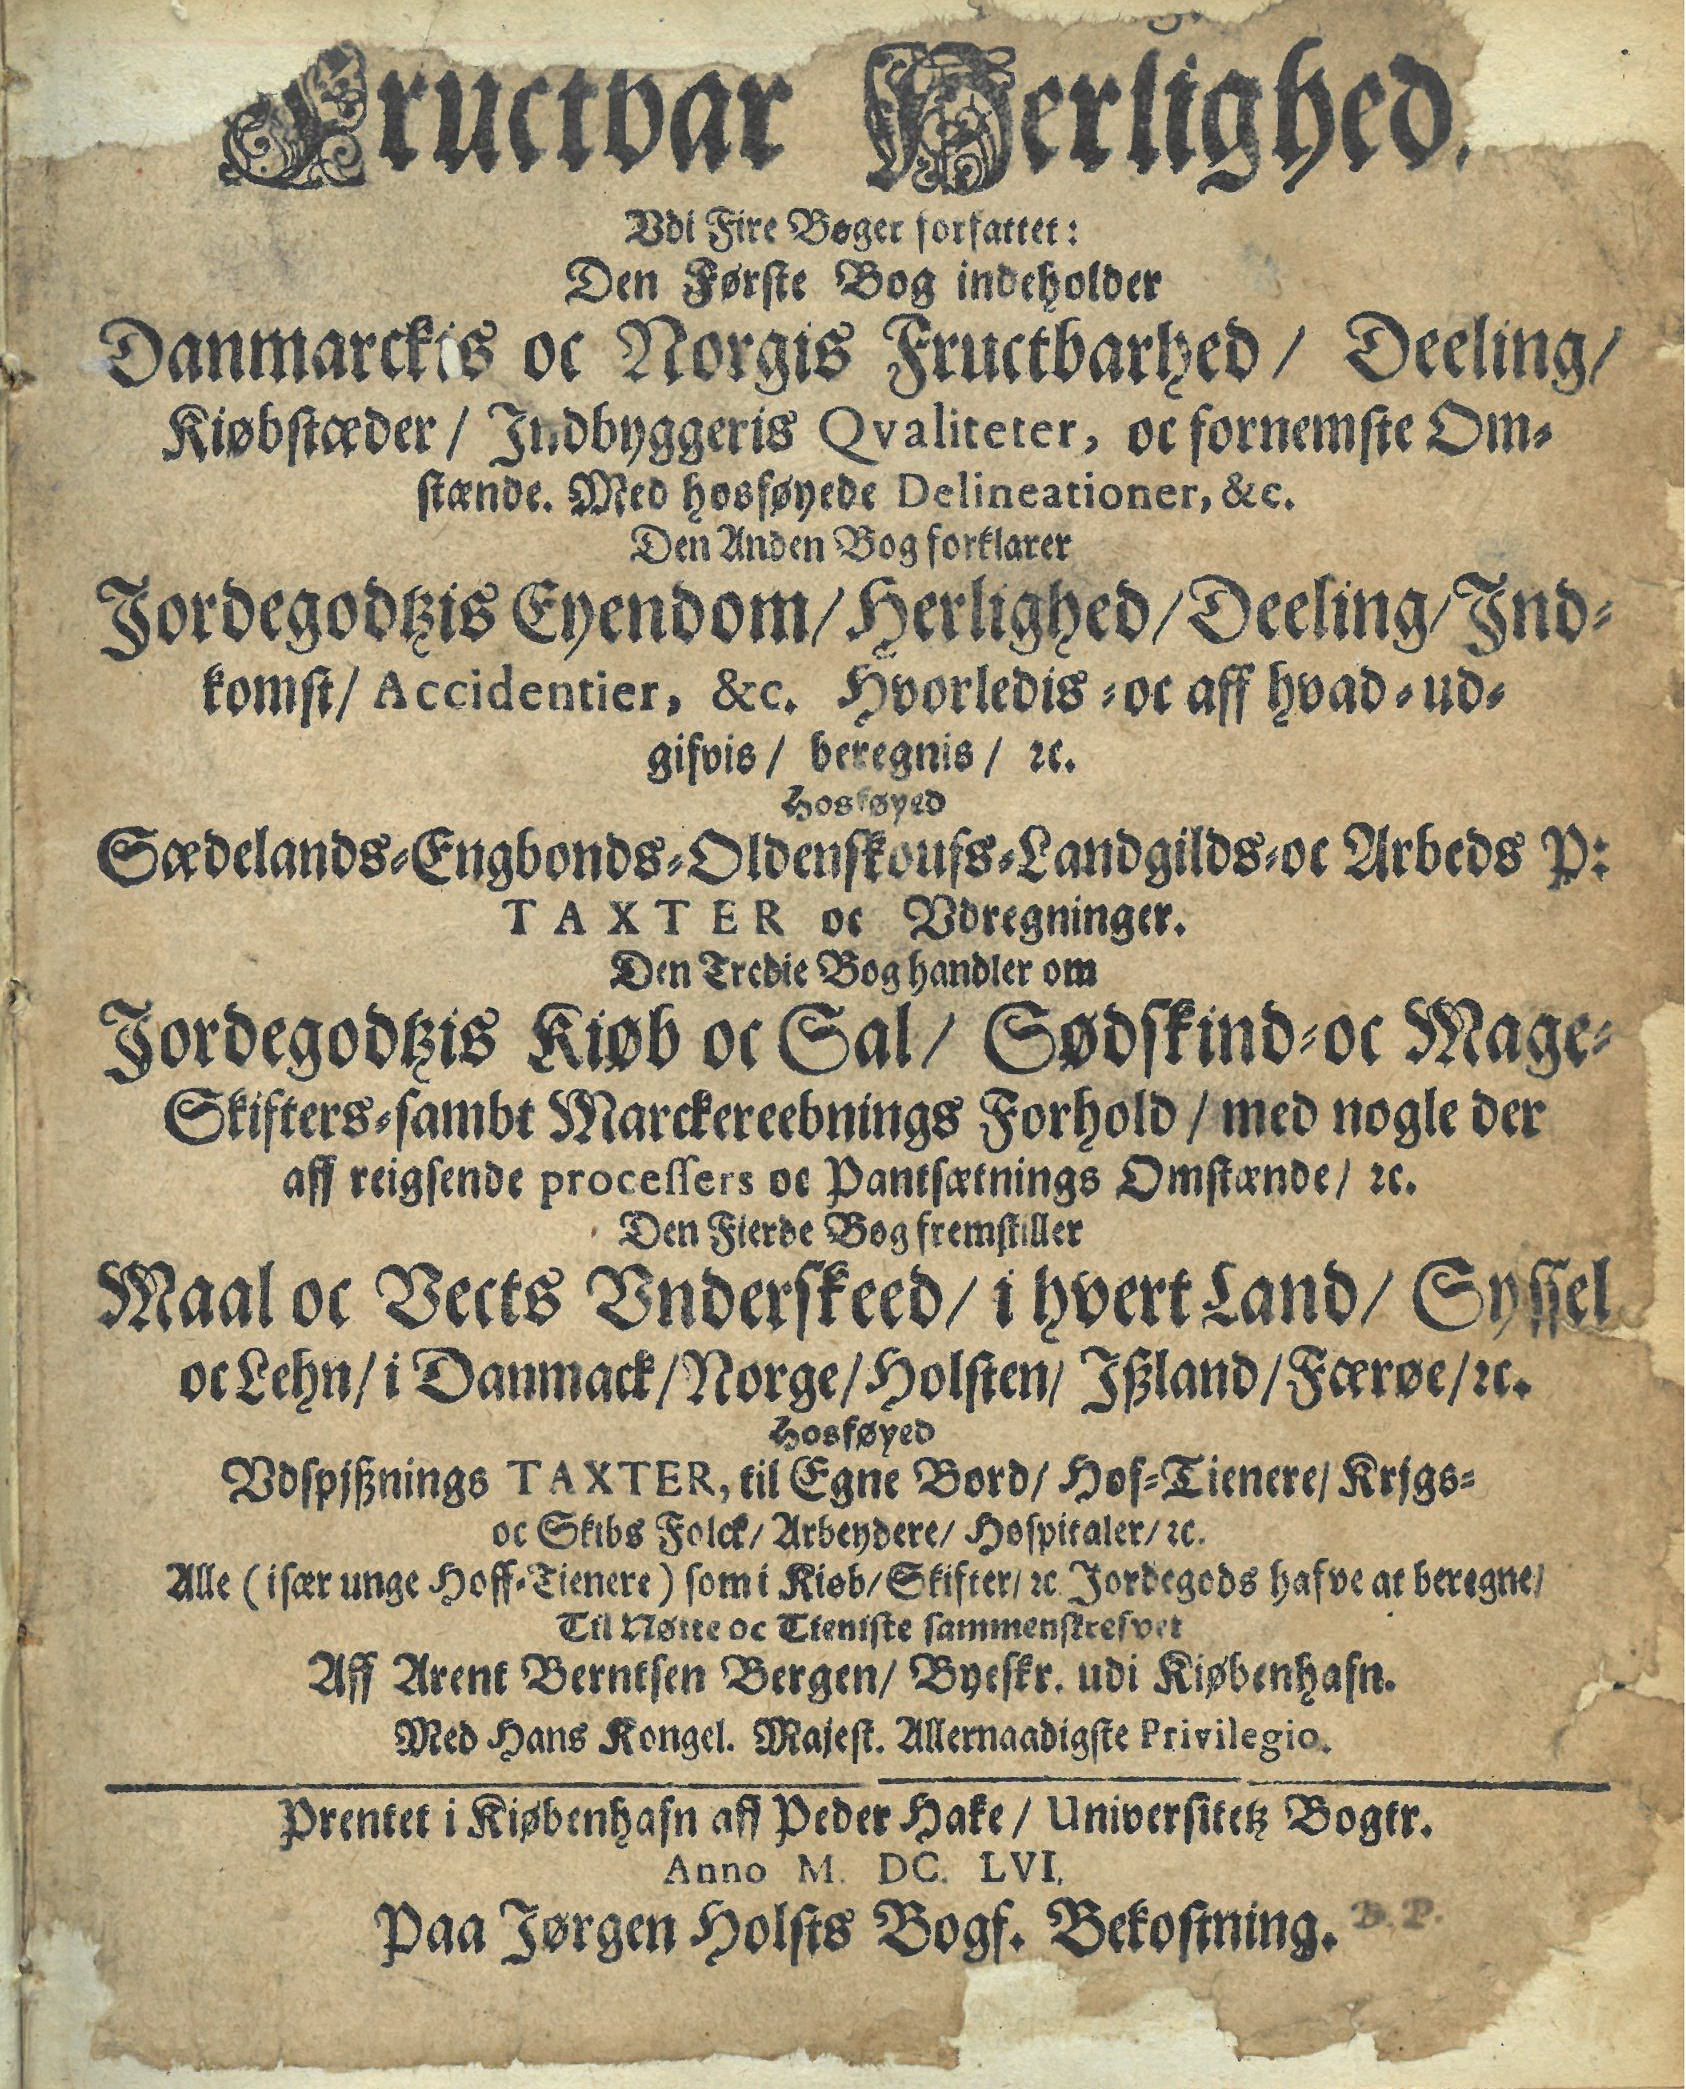 Fructbar Herlighed.
Vdi Fire Bøger forfattet:
Den Første Bog indeholder
Danmarckis oc Norgis Fructbarhed/ Deeling/
Kiøbstæder/ Indbyggeris Qvaliteter, oc fornemste Om⸗
stænde. Med hosføyede Delineationer, &c.
Den Anden Bog forklarer
Jordegodtzis Eyendom/ Herlighed/ Deeling/ Ind⸗
komst/ Accidentier, &c. Hvorledis⸗oc aff hvad⸗ud⸗
gifvis/ beregnis/ ꝛc.
Hosføyed
Sædelands⸗Engbonds⸗Oldenskoufs⸗Landgilds⸗oc Arbeds P:
TAXTER oc Vdregninger.
Den Tredie Bog handler om
Jordegodtzis Kiøb oc Sal/ Sødskind⸗oc Mage⸗
Skifters⸗sambt Marckereebnings Forhold/ med nogle der
aff reigsende processers oc Pantsætnings Omstænde/ ꝛc.
Den Fierde Bog fremstiller
Maal oc Vects Vnderskeed/ i hvert Land/ Syssel
oc Lehn/ i Danmack/ Norge/ Holsten/ Ißland/ Færøe/ ꝛc.
Hosføyed
Vdspjßnings TAXTER, til Egne Bord/ Hof⸗Tienere/ Krjgs⸗
oc Skibs Folck/ Arbeydere/ Hospitaler/ ꝛc.
Alle (især unge Hoff⸗Tienere) som i Kiøb/ Skifter/ ꝛc Jordegods hafve at beregne/
Til Nøtte oc Tieniste sammenskrefvet
Aff Arent Berntsen Bergen/ Byeskr. udi Kiøbenhafn.
Med Hans Kongel. Majest. Allernaadigste Privilegio.
Prentet i Kiøbenhafn aff Peder Hake/ Universitetz Bogtr.
Anno M. DC. LVI.
Paa Jørgen Holsts Bogf. Bekostning. B. P.